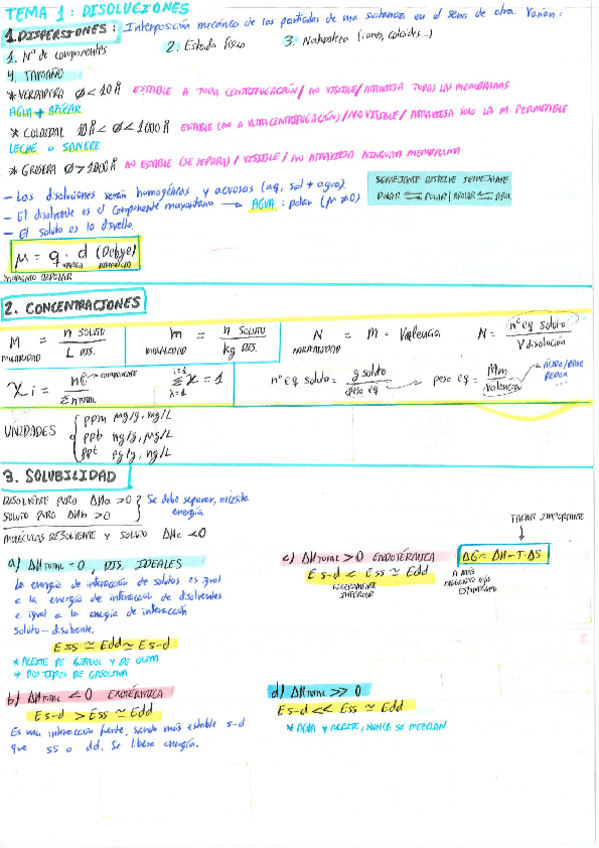 TEMA 1: DISOLUCIONES
1. DISPERSIONES: Interposición mecánica de las partículas de una sustancia en el seno de otra. Varían:
1. Nº de componentes 2. Estado físico 3. Naturaleza (iones, coloides...)
4. TAMAÑO
* VERDADERA Ø < 10 Å ESTABLE A TODA CENTRIFUGACIÓN / NO VISIBLE / ATRAVIESA TODAS LAS MEMBRANAS
AGUA + AZÚCAR
* COLOIDAL 10 Å < Ø < 1000 Å ESTABLE (NO A ULTRACENTRIFUGACIÓN) / NO VISIBLE / ATRAVIESA SOLO LA M. PERMEABLE
LECHE o SANGRE
* GROSERA Ø > 1000 Å NO ESTABLE (SE SEPARA) / VISIBLE / NO ATRAVIESA NINGUNA MEMBRANA
- Las disoluciones serán homogéneas y acuosas (aq, sol + agua)
- El disolvente es el componente mayoritario → AGUA: polar (μ ≠ 0)
- El soluto es lo disuelto.
SEMEJANTE DISUELVE SEMEJANTE
POLAR ⇌ POLAR | APOLAR ⇌ APOL
μ = q · d (Debye)
CARGA DISTANCIA
MOMENTO DIPOLAR
2. CONCENTRACIONES
M = n SOLUTO / L DIS.
MOLARIDAD
m = n SOLUTO / kg DIS.
MOLALIDAD
N = M · Valencia
NORMALIDAD
N = nº eq soluto / V disolución
Xi = ni / Σ n TOTAL
COMPONENTE
Σ X = 1
nº eq soluto = g soluto / peso eq
peso eq = Mm / Valencia
ÁCIDO/BASE
REDOX
UNIDADES
ppm μg/g, mg/L
ppb ng/g, μg/L
ppt pg/g, ng/L
3. SOLUBILIDAD
DISOLVENTE PURO ΔHa > 0
SOLUTO PURO ΔHb > 0
Se debe separar, necesita
energía
MOLÉCULAS DISOLVENTE Y SOLUTO ΔHc < 0
a) ΔH TOTAL = 0, DIS. IDEALES
La energía de interacción de solutos es igual
a la energía de interacción de disolventes
e igual a la energía de interacción
soluto - disolvente.
Ess ≃ Edd ≃ Es-d
* ACEITE DE GIRASOL Y DE OLIVA
* DOS TIPOS DE GASOLINA
b) ΔH TOTAL < 0 EXOTÉRMICA
Es-d > Ess ≃ Edd
Es una interacción fuerte, siendo más estable s-d
que ss o dd. Se libera energía.
c) ΔH TOTAL > 0 ENDOTÉRMICA
Es-d < Ess ≃ Edd
LIGERAMENTE
INFERIOR
FACTOR IMPORTANTE
ΔG = ΔH - T·ΔS
A MÁS
NEGATIVO MÁS
ESPONTÁNEO
d) ΔH TOTAL >> 0
Es-d << Ess ≃ Edd
* AGUA Y ACEITE, NUNCA SE MEZCLAN